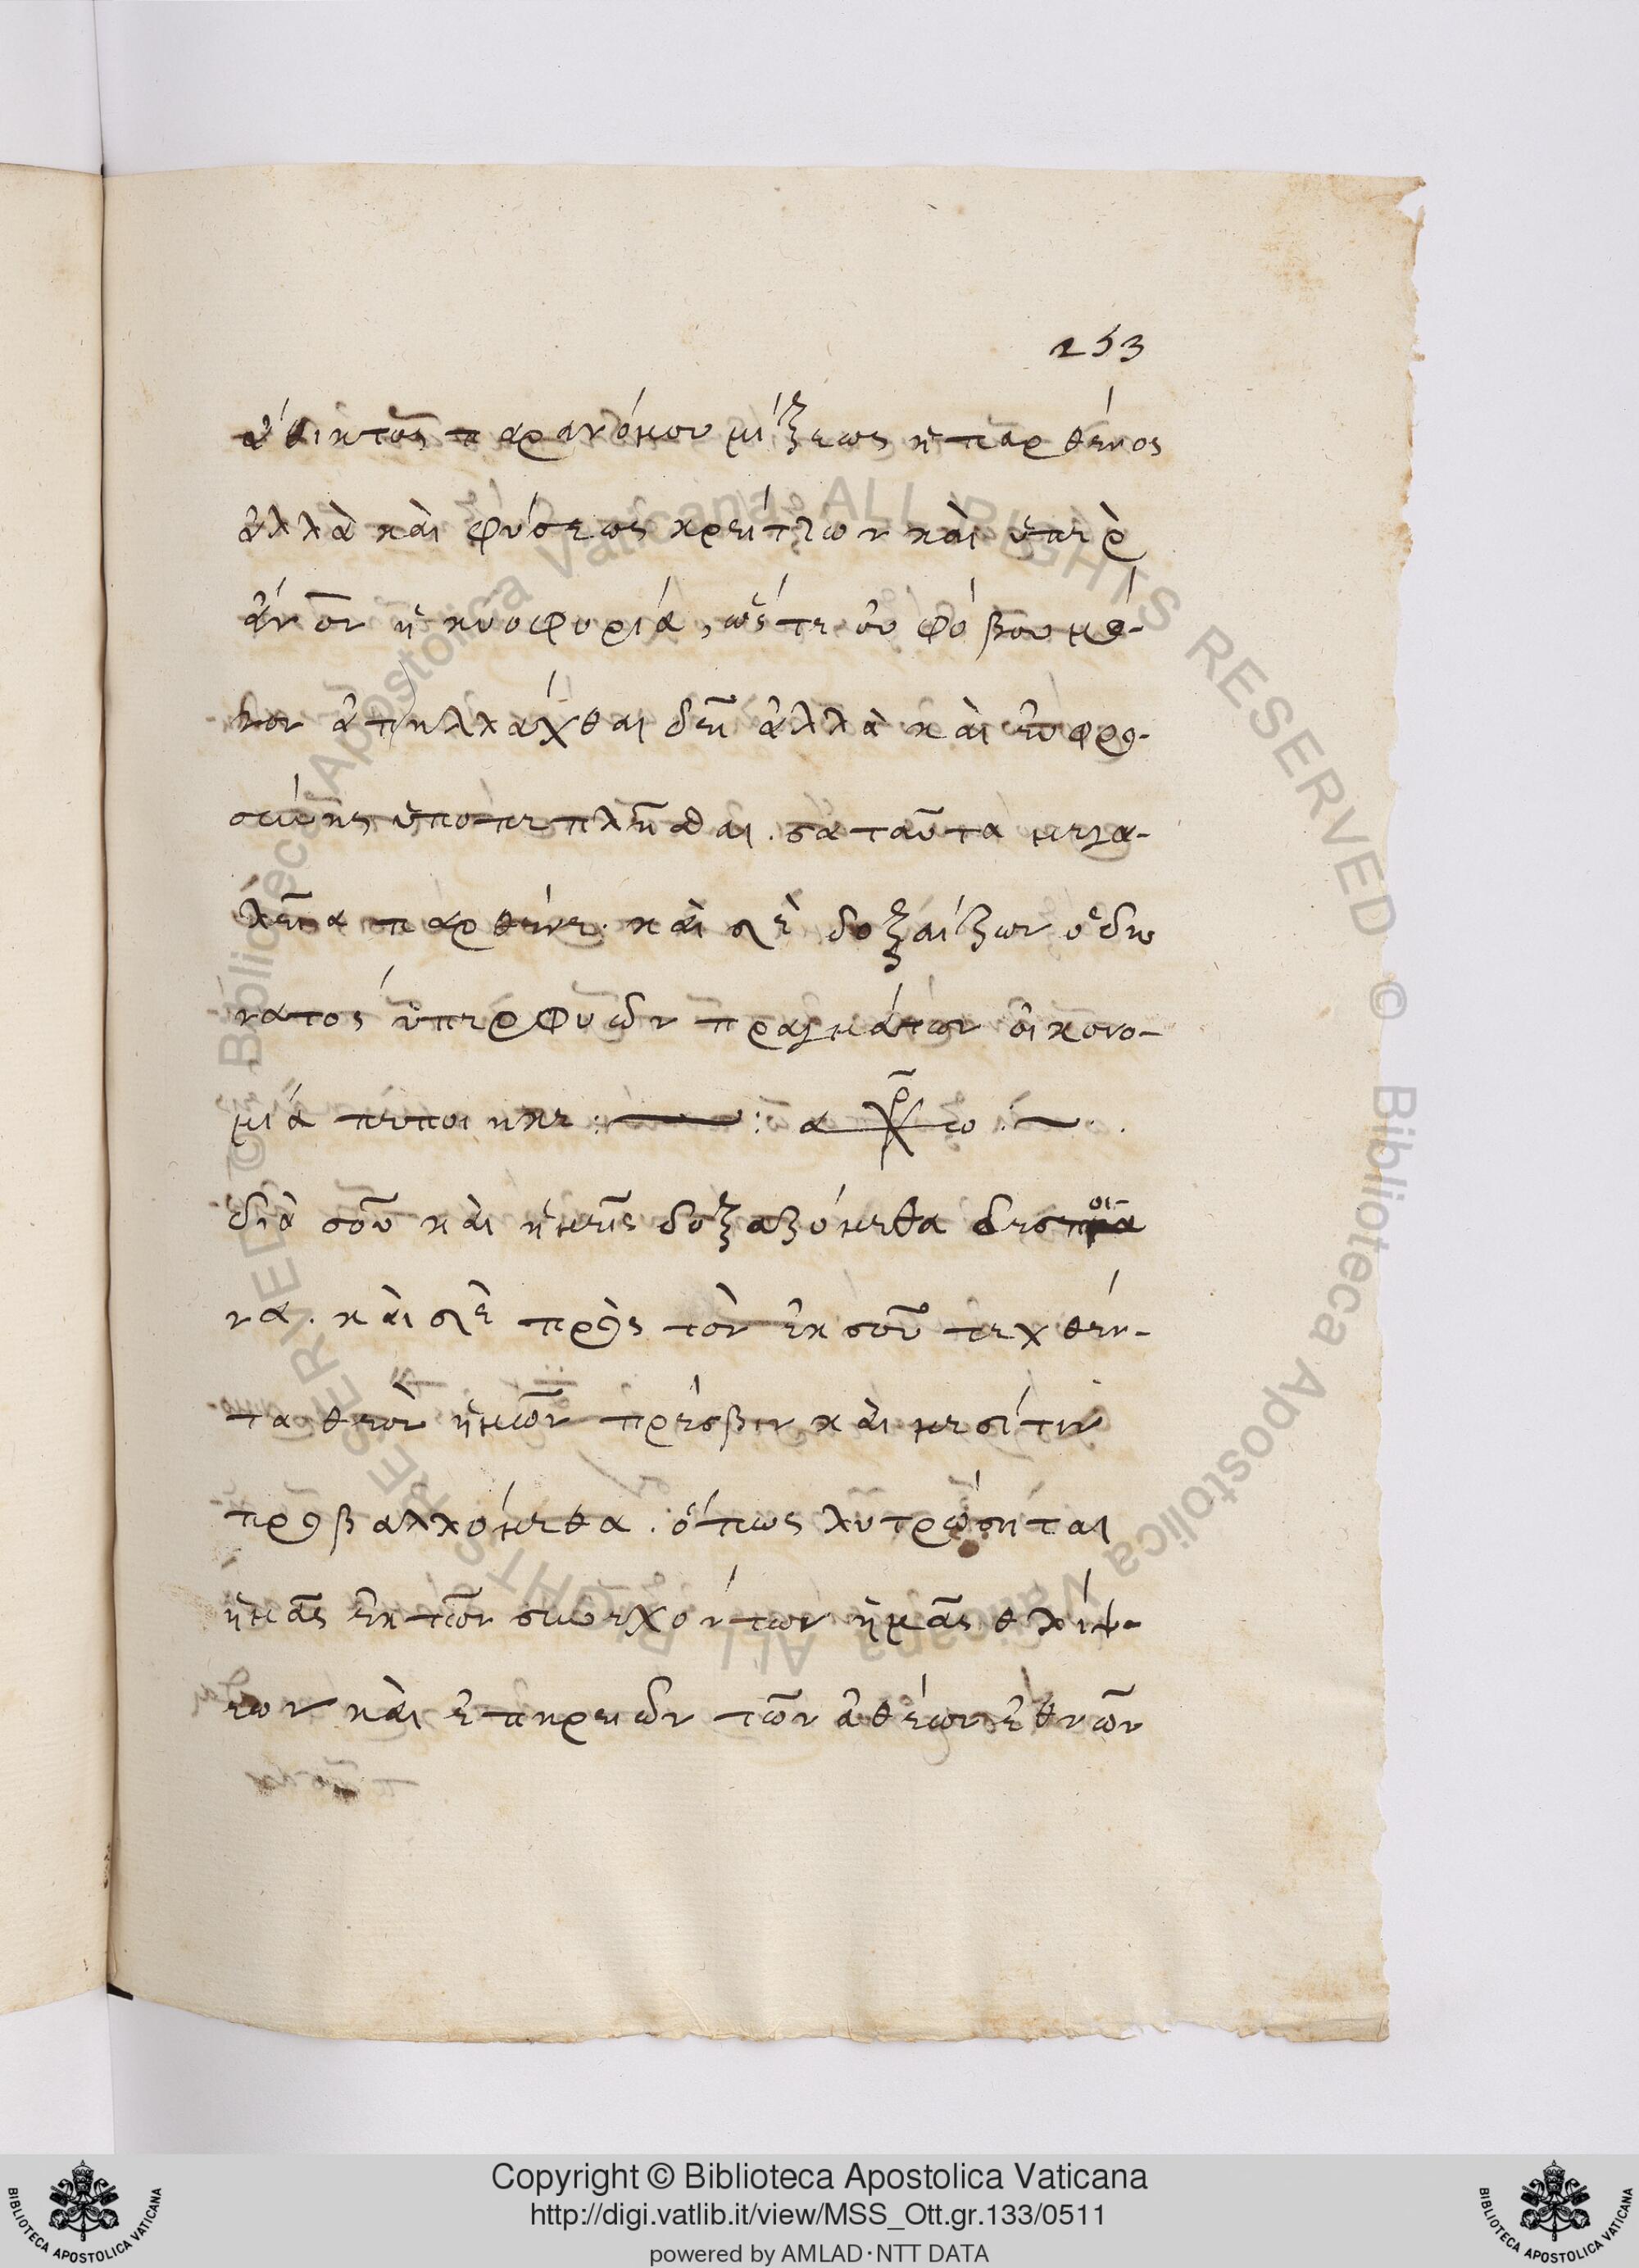 253
ἄθικτος παρανόμου μίξεως ἡ παρθένος
ἀλλὰ καὶ φύσεως κρείττων καὶ ὑπὲρ
ἄνον ἡ κυοφορία, ὥστε οὐ φόβου μό-
νον ἀπηλλάχθαι δεῖ ἀλλὰ καὶ εὐφρο-
σύνης ὑποπεπλῆσθαι. σὰ ταῦτα μεγα-
λεῖα παρθένε. καὶ σὲ δοξάζων ὁ δυ
νατὸς ὑπερφυῶν πραγμάτων οἰκονο-
μία πεποίηκε :
διὰ σοῦ καὶ ἡμεῖς δοξαζόμεθα δεσποι
να. καὶ σὲ πρὸς τὸν ἐκ σοῦ τεχθέν-
τα θεὸν ἡμῶν πρέσβιν καὶ μεσίτιν
προβαλλόμεθα. ὅπως λυτρώσηται
ἡμᾶς ἐκ τῶν συνεχόντων ἡμᾶς θλίψ-
εων καὶ ἐπηρειῶν τῶν ἀθέων ἐθνῶν
Copyright © Biblioteca Apostolica Vaticana
http://digi.vatlib.it/view/MSS_Ott.gr.133/0511
powered by AMLAD·NTT DATA
BIBLIOTECA APOSTOLICA VATICANA
BIBLIOTECA APOSTOLICA VATICANA
© Biblioteca Apostolica Vaticana ALL RIGHTS RESERVED
© Biblioteca Apostolica Vaticana ALL RIGHTS RESERVED